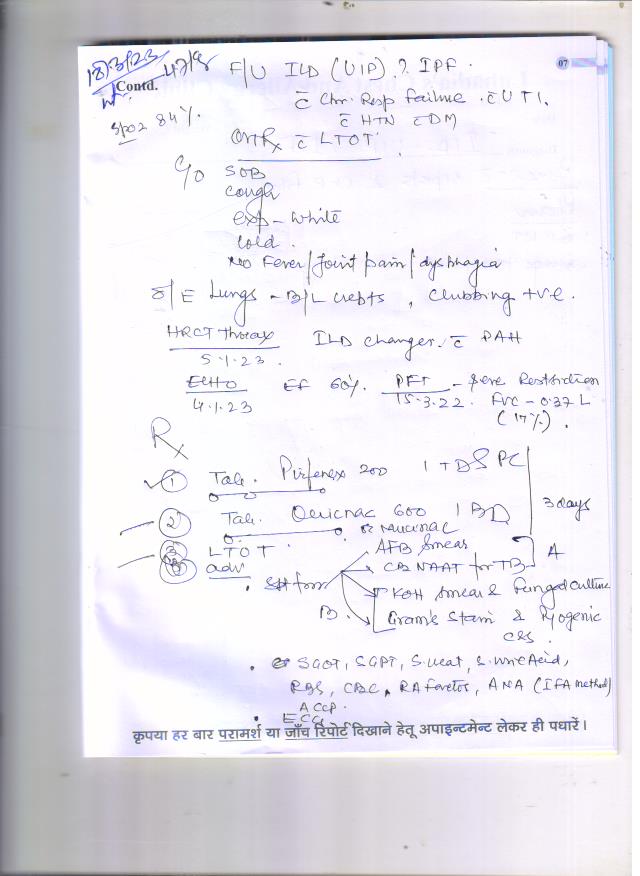 18/3/23
Contd. 47/g F/U ILD (UIP) ? IPF. 07
c̄ Chr. Resp failure. c̄ UTI.
SpO2 84%. c̄ HTN c̄ DM
On Rx c̄ LTOT
C/O SOB
cough
exp - white
cold.
No Fever/Joint pain/dysphagia
O/E Lungs - B/L crepts, Clubbing +ve.
HRCT Thorax ILD changes. c̄ PAH
5.1.23.
ECHO EF 60%. PFT - Severe Restriction
4.1.23 15.3.22. FVC - 0.37 L
(17%).
Rx
① Tab. Pirfenex 200 1 TDS PC
② Tab. 600 1 BD 3 days
or Mucinac
③ LTOT. AFB Smear A
adv CBNAAT for TB
for KOH Smear & Fungal culture
B. Gram's Stain & Pyogenic
C&S.
• SGOT, SGPT, S. Urea, S. Uric Acid,
RBS, CBC, RA Factor, ANA (IFA method)
ACCP.
• ECG
कृपया हर बार परामर्श या जाँच रिपोर्ट दिखाने हेतू अपाइन्टमेन्ट लेकर ही पधारें।